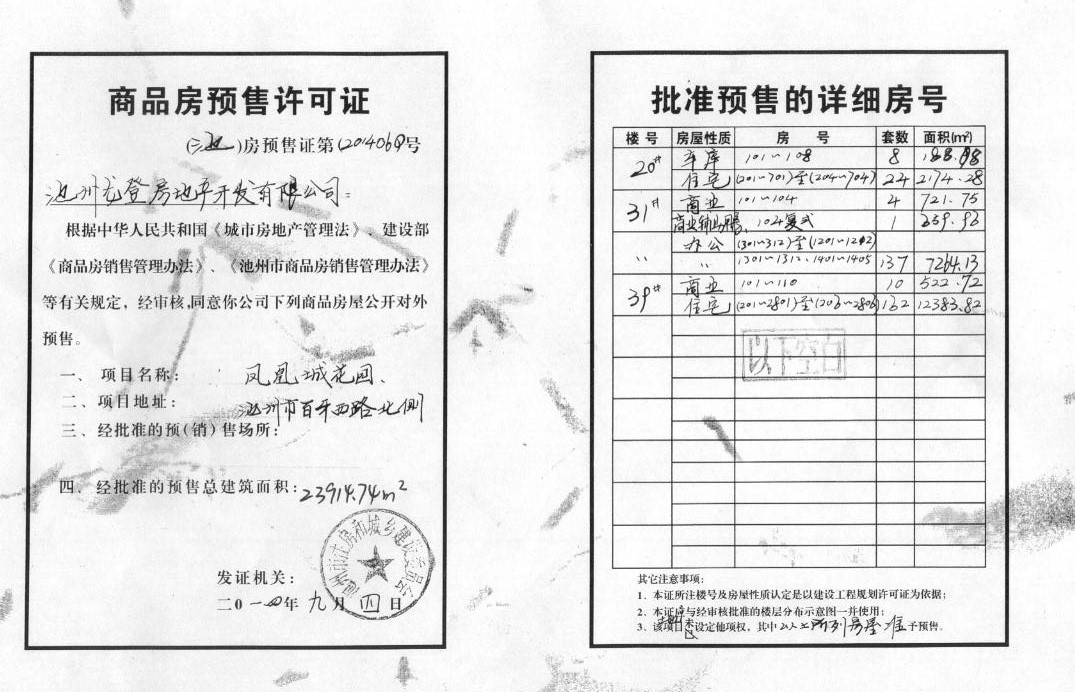 商品房预售许可证
(池)房预售证第(2014068)号
池州龙登房地产开发有限公司:
根据中华人民共和国《城市房地产管理法》、建设部
《商品房销售管理办法》、《池州市商品房销售管理办法》
等有关规定，经审核,同意你公司下列商品房屋公开对外
预售。
一、项目名称: 凤凰城花园、
二、项目地址: 池州市百牙西路北侧
三、经批准的预(销)售场所:
四、经批准的预售总建筑面积: 23914.74m²
池州市住房和城乡建设委员会
发证机关:
二0一四年九月四日
批准预售的详细房号
楼号 房屋性质 房号 套数 面积(㎡)
20# 车库 101~108 8
住宅 (201~701)至(204~704) 24 2174.28
31# 商业 101~104 4 721.75
104复式 1 659.93
办公 (301~312)至(1201~1212)
〃 〃 1301~1312、1401~1405 137 7264.13
39# 商业 101~110 10 522.72
住宅 (201~2801)至(206~2806) 162 12383.82
以下空白
其它注意事项:
1．本证所注楼号及房屋性质认定是以建设工程规划许可证为依据;
2．本证应与经审核批准的楼层分布示意图一并使用;
3．该项目未设定他项权，其中以上所列房屋准予预售。